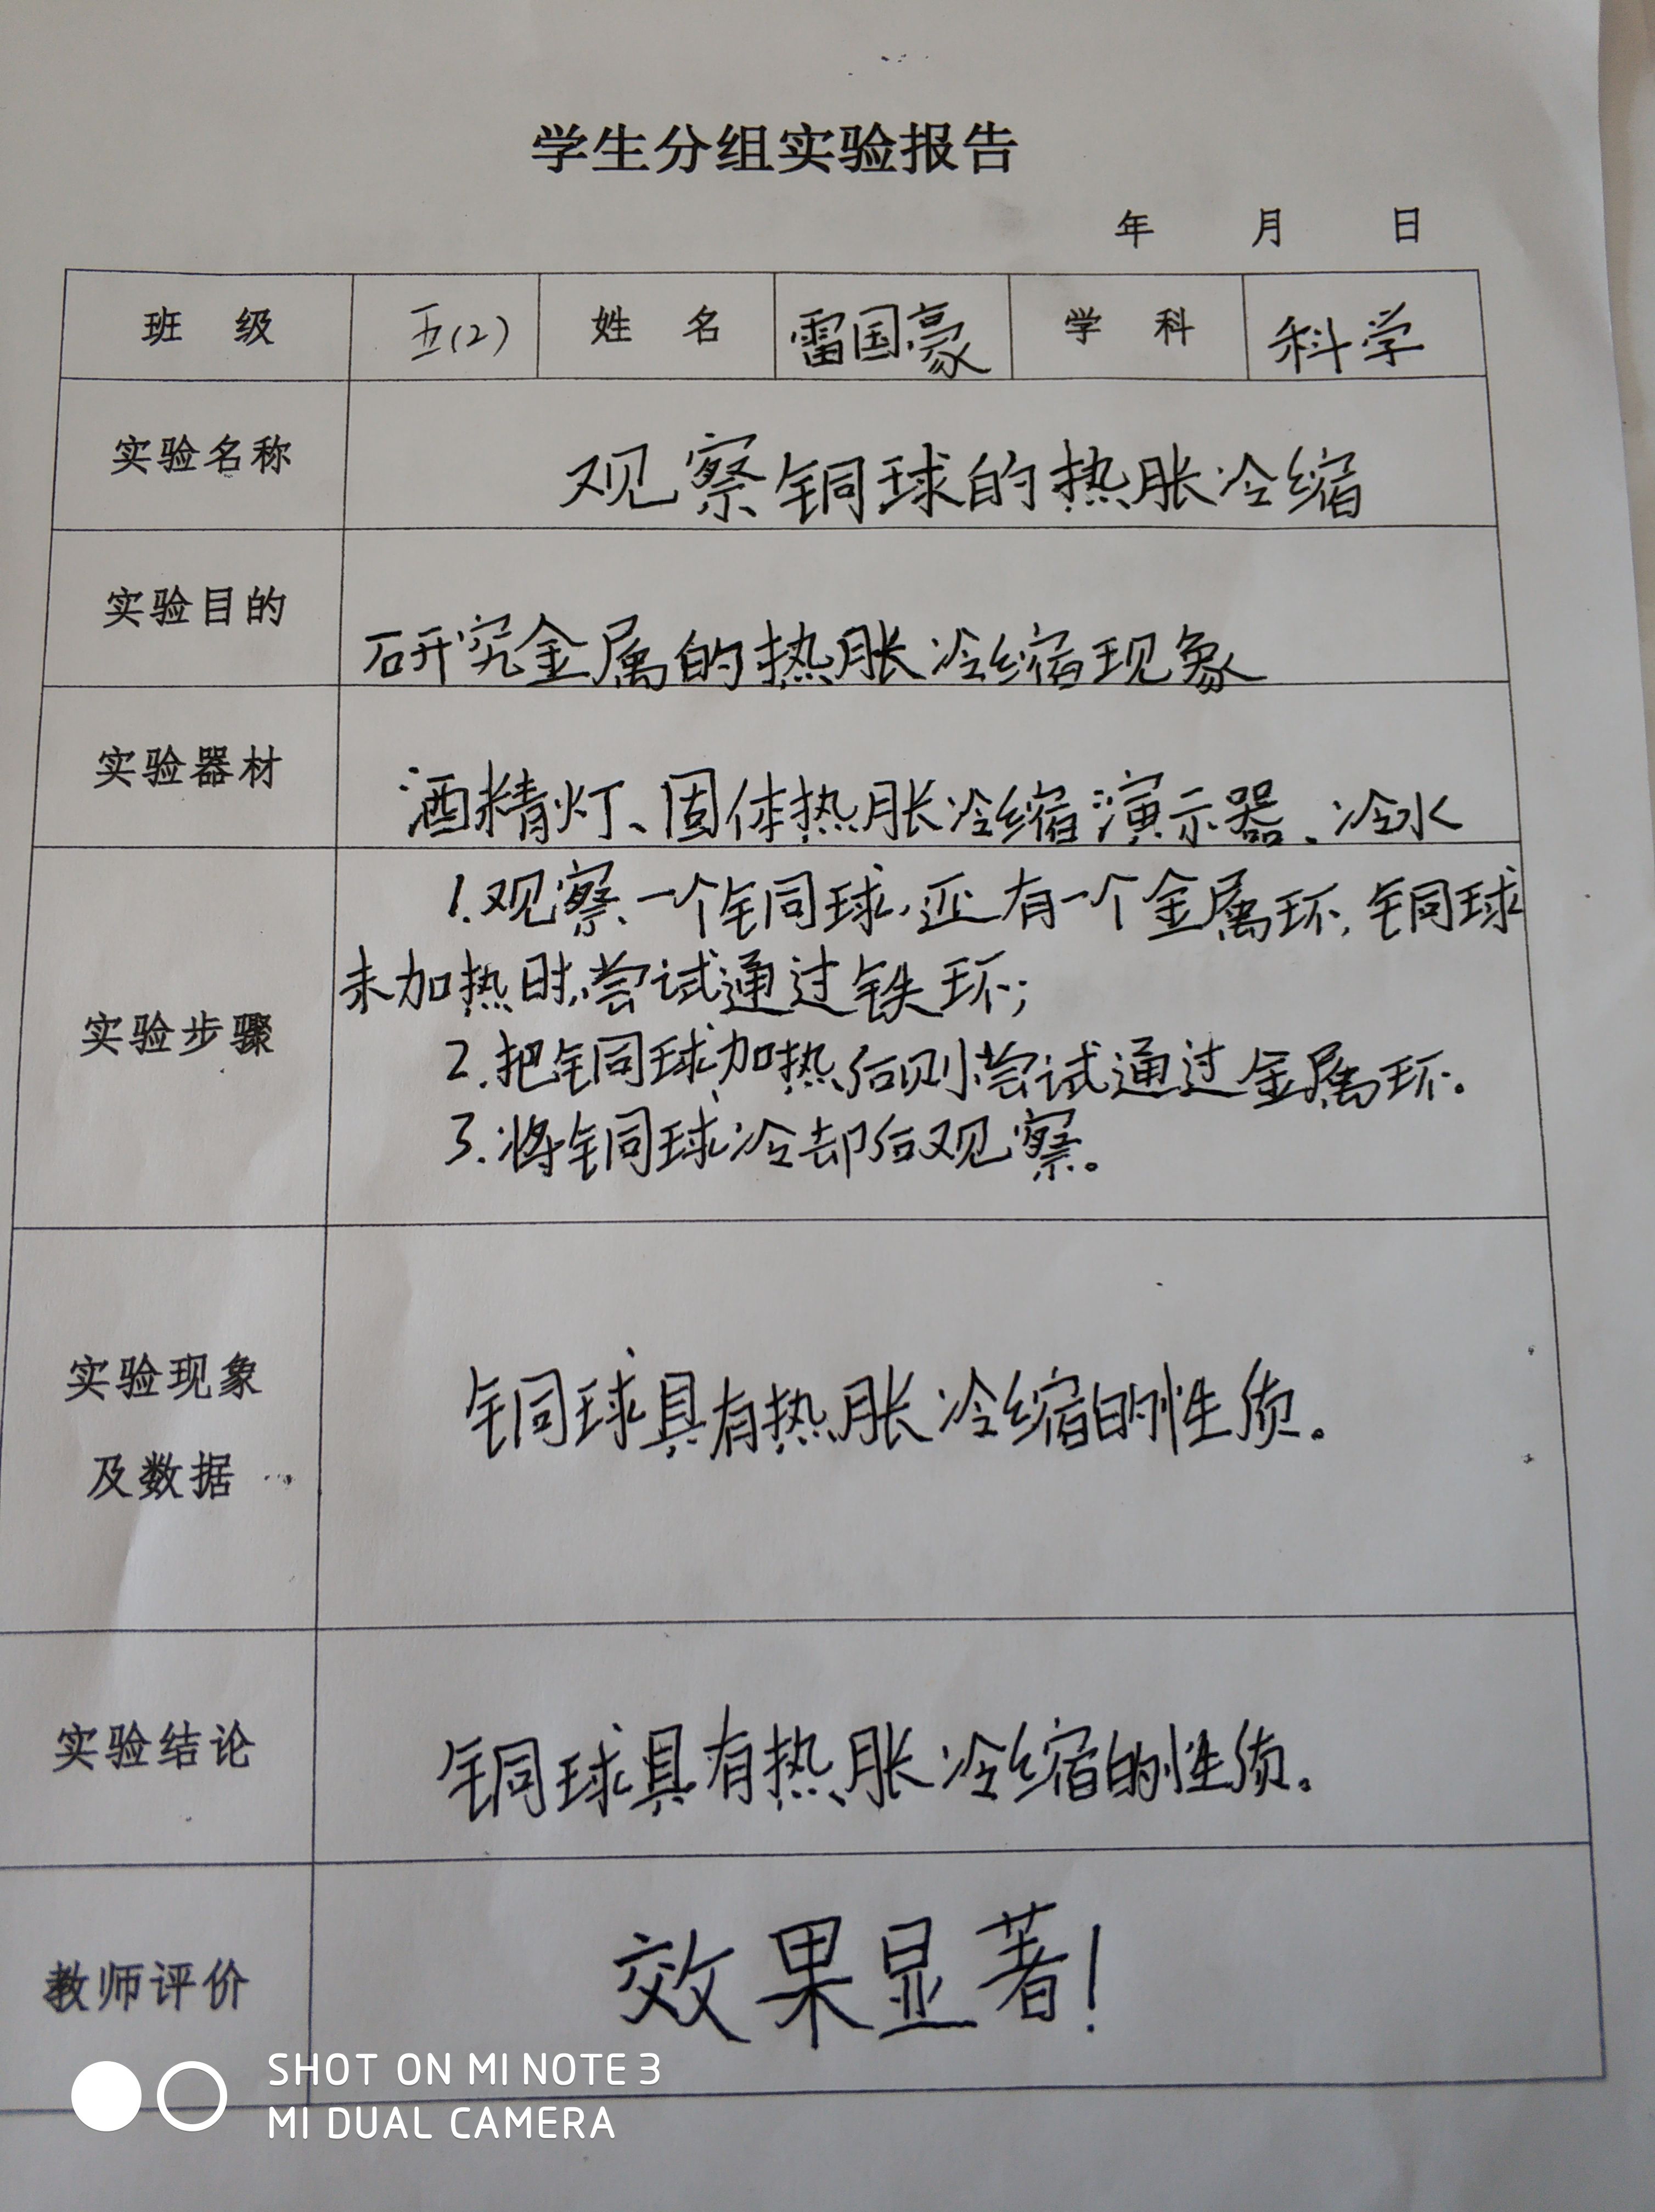 学生分组实验报告
年 月 日
班 级 五(2) 姓 名 雷国豪 学 科 科学
实验名称 观察铜球的热胀冷缩
实验目的 研究金属的热胀冷缩现象
实验器材 酒精灯、固体热胀冷缩演示器、冷水
实验步骤
1.观察一个铜球,还有一个金属环,铜球
未加热时,尝试通过铁环;
2.把铜球加热后则尝试通过金属环。
3.将铜球冷却后观察。
实验现象
及数据
铜球具有热胀冷缩的性质。
实验结论 铜球具有热胀冷缩的性质。
教师评价 效果显著!
SHOT ON MI NOTE 3
MI DUAL CAMERA